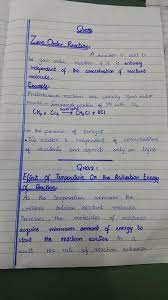 Qno1
Zero Order Reaction:
A reaction is said to
be zero order reaction if it is entirely
independent of the concentration of reactant
molecule.
Example:
Photochemical reactions are usually zero order
CH₄ + Cl₂ → CH₃Cl + HCl
in the presence of sunlight
This reaction is independent of concentration
of reactants and depends only on light.
Qno2:
Effect of Temperature On the Activation Energy
of Reaction:
As the temperature increases the
between reactant molecule
increases, the molecules of reactants
acquire minimum amount of energy to
start the reaction earlier As a
result the rate of reaction enhances